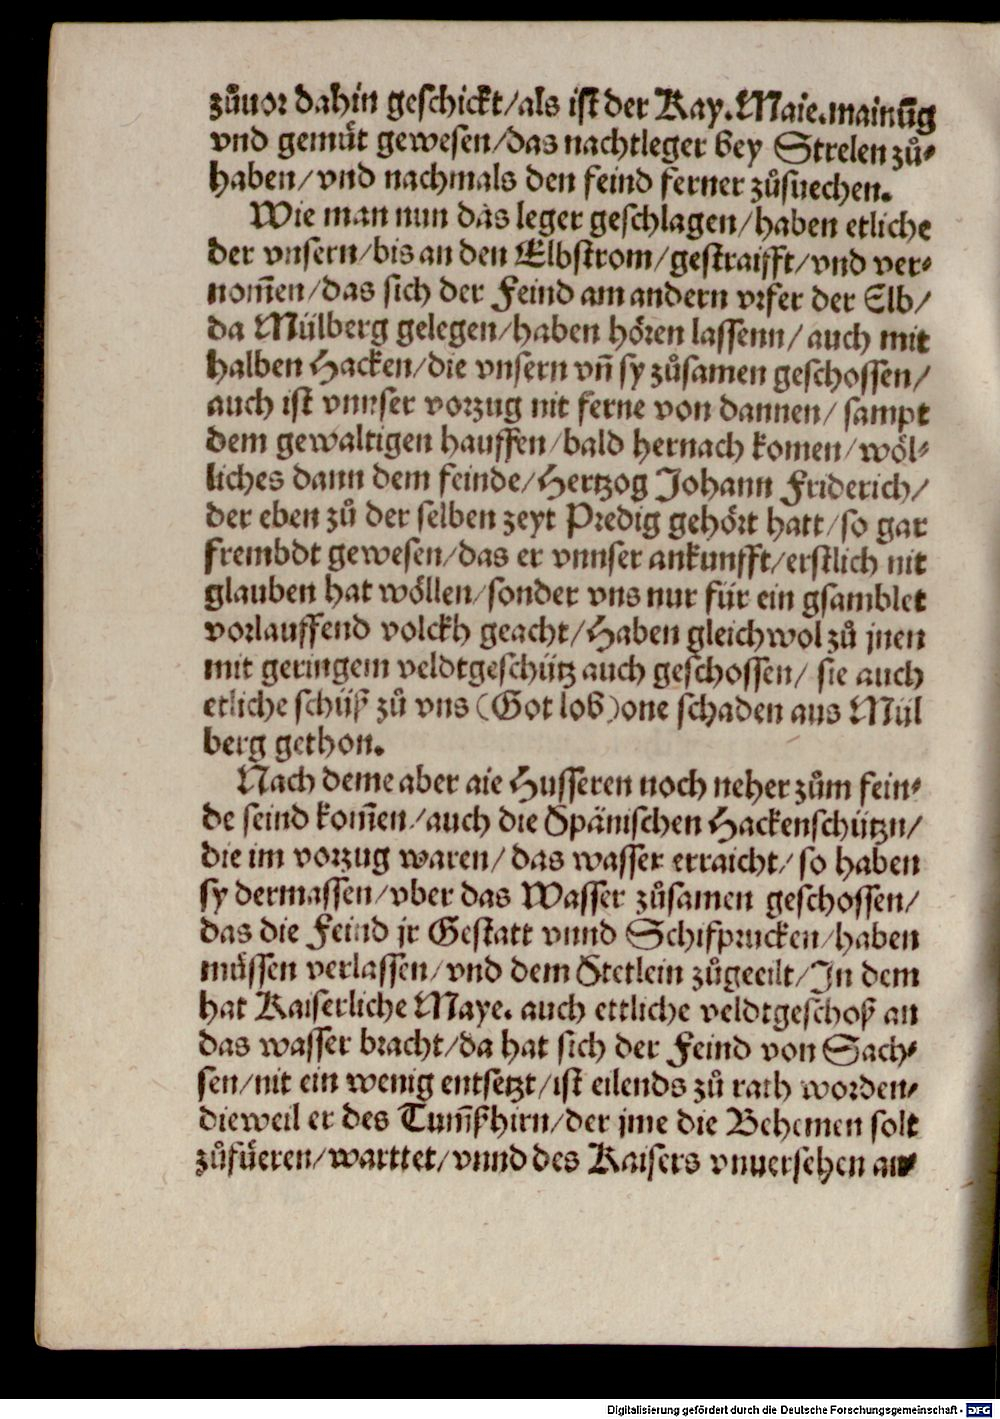 zůuor dahin geschickt/als ist der Kay. Maie. mainūg
vnd gemüt gewesen/das nachtleger bey Strelen zů-
haben/vnd nachmals den feind ferner zůsuechen.
Wie man nun das leger geschlagen/haben etliche
der vnsern/bis an den Elbstrom/gestraifft/vnd ver-
nom̄en/das sich der Feind am andern vrfer der Elb/
da Mülberg gelegen/haben hören lassenn/auch mit
halben Hacken/die vnsern vn̄ sy zůsamen geschossen/
auch ist vnnser vorzug nit ferne von dannen/sampt
dem gewaltigen hauffen/bald hernach komen/wöl-
liches dann dem feinde/Hertzog Johann Friderich/
der eben zů der selben zeyt Predig gehört hatt/so gar
frembdt gewesen/das er vnnser ankunfft/erstlich nit
glauben hat wöllen/sonder vns nur für ein gsamblet
vorlauffend volckh geacht/Haben gleichwol zů jnen
mit geringem veldtgeschütz auch geschossen/sie auch
etliche schüß zů vns (Got lob) one schaden aus Mül
berg gethon.
Nach deme aber aie Husseren noch neher zům fein-
de seind kom̄en/auch die Spänischen Hackenschützn/
die im vorzug waren/das wasser erraicht/so haben
sy dermassen/vber das Wasser zůsamen geschossen/
das die Feind jr Gestatt vnnd Schifprucken/haben
müssen verlassen/vnd dem Stetlein zůgeeilt/In dem
hat Kaiserliche Maye. auch ettliche veldtgeschoß an
das wasser bracht/da hat sich der Feind von Sach-
sen/nit ein wenig entsetzt/ist eilends zů rath worden-
dieweil er des Tum̄ßhirn/der jme die Behemen solt
zůfüeren/warttet/vnnd des Kaisers vnuersehen an-
Digitalisierung gefördert durch die Deutsche Forschungsgemeinschaft - DFG